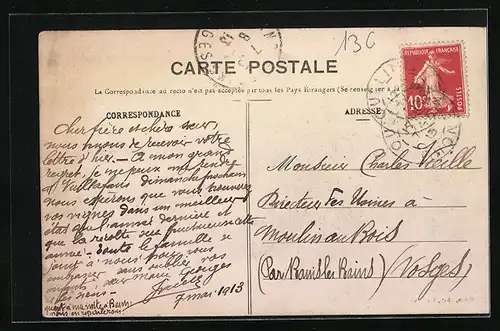 13C
CARTE POSTALE
La Correspondance au recto n'est pas acceptée par tous les Pays Etrangers (Se renseigner à la
CORRESPONDANCE
Cher frère et chère sœur,
nous venons de recevoir votre
lettre d'hier. — A mon grand
regret, je ne peux me rendre
à Vuillafans dimanche prochain
nous espérons que vous trouverez
vos vignes dans un meilleur
état que l'année dernière et
que la récolte sera fructueuse cette
année — Toute la famille se
joint à nous pour vous
embrasser sans oublier vos
Georges
7 mai 1913
quant à ma visite à Bains
nous en reparlerons
ADRESSE
REPUBLIQUE FRANÇAISE
10
POSTES
Monsieur Charles
Directeur des Usines à
Moulin au Bois
(Par Bains les Bains) (Vosges)